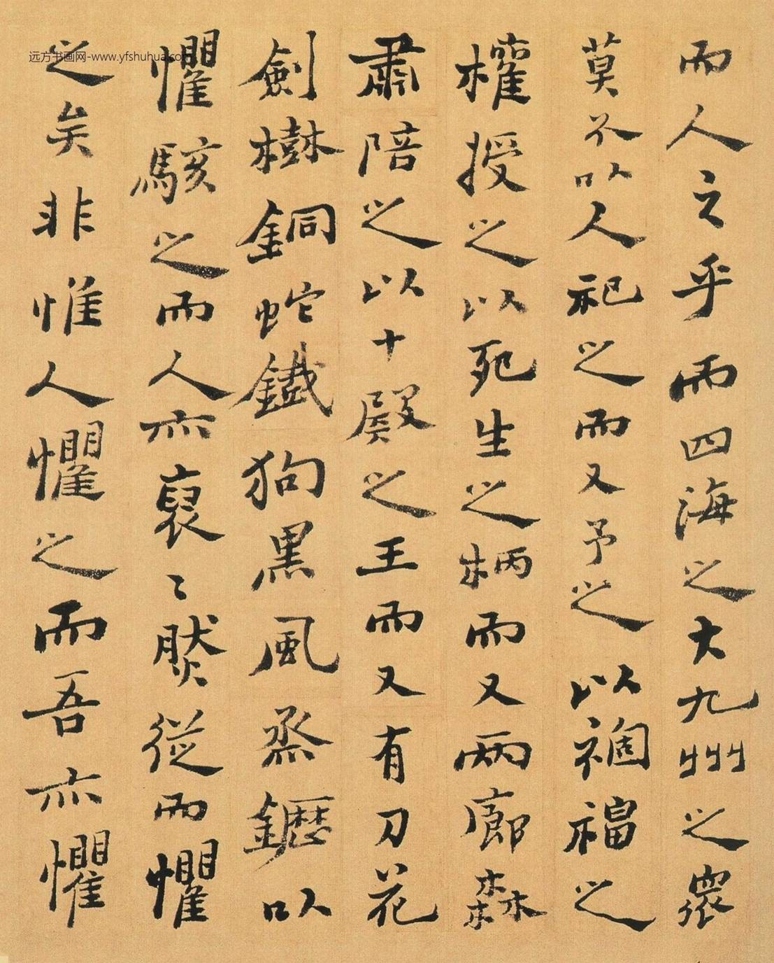 而人之乎而四海之大九州之衆
莫不以人祀之而又予之以禍福之
權授之以死生之柄而又兩廊森
肅陪之以十殿之王而又有刀花
劍樹銅蛇鐵狗黑風烝䥶以
懼駭之而人亦裒〻然從而懼
之矣非惟人懼之而吾亦懼
远方书画网-www.yfshuhua.com